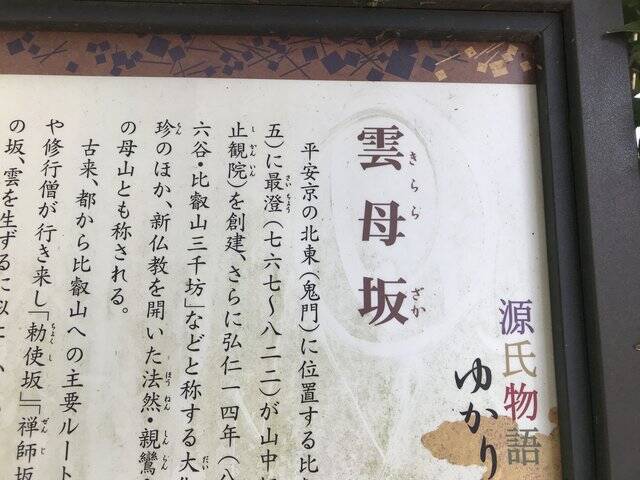 源氏物語
ゆかり
雲母坂
きらら
ざか
平安京の北東（鬼門）に位置する比
五）に最澄（七六七～八二二）が山中
さいちょう
止観院）を創建、さらに弘仁一四年（八
しかんいん
六谷・比叡山三千坊」などと称する大
だい
珍のほか、新仏教を開いた法然・親鸞
ちん
ほうねん
しんらん
の母山とも称される。
古来、都から比叡山への主要ルート
や修行僧が行き来し「勅使坂」「禅師坂
ちょくし
ぜんじ
の坂、雲を生ずるに似